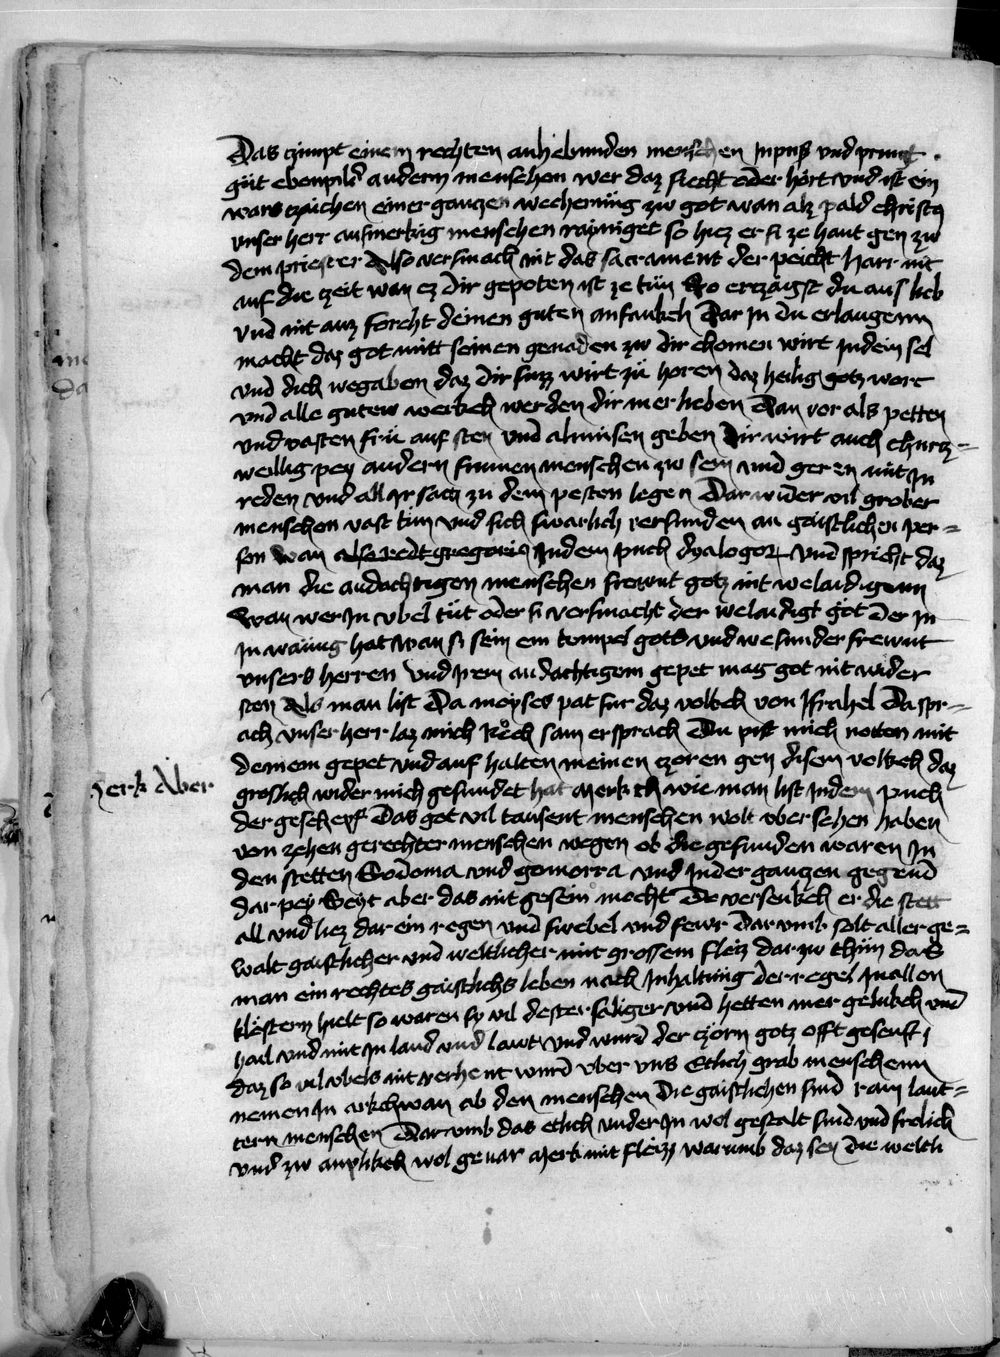 Das czimpt einem rechten anhebunden menschen In puss vnd printt
güt ebenpild andern menschen wer daz siecht oder hört vnd ist ein
wars czaichen einer ganczen wecherung zw got wan alz pald christus
vnser herr ausmerkig menschen rayniget so hiez er si ze hant gen zw
dem priester Also versmach nit das sacrament der peicht harr nit
auf die czeit wan ez dir gepoten ist ze tün So erczaigst du aus lieb
vnd nit auz forcht deinen guten anfankch Dar In du erlangenn
macht daz got mitt seinen genaden zw dir chomen wirt In dein sel
vnd dich wegaben daz dir suzz wirt zü horen daz heilig gotz wort
vnd alle gutew werkch werden dir mer lieben dan vor als petten
vnd vasten frü auf sten vnd almusen geben Dir wirt auch churcz=
weillig pey andern frumen menschen zw sein vnd geren mit In
reden vnd all Ir sach zu dem pesten legen Dar wider vil grober
menschen vast tün vnd sich swarlich versunden an gaistlichen per=
son wan also redt gregorius In dem puch dyalogor vnd spricht daz
man die andachtigen menschen frewnt gotz nit welaidigenn
wan wer In vbel tüt oder si versmacht der welaidigt got der In
In wanung hat wan si sein ein tempel gots vnd wesunder frewnt
vnsers herren vnd Irem andachtigem gepet mag got nit wider
sten Als man list Da moyses pat fur daz volkch von Israhel Da spr=
ach vnser herr laz mich Rech sam er sprach Du pist mich notten mit
deinem gepet vnd auf halten meinen czoren gen disem volkch daz
groslich wider mich gesundet hat merk ch wie man list In dem puch
merk Aber
der gescheph Das got vil tausent menschen wolt vber sehen haben
von zehen gerechter menschen wegen ob die gefunden waren In
den stetten Sodoma vnd gomorra vnd In der ganczen gegend
dar pey Seyt aber das nit gesein mocht Do versenkch er die stett
all vnd liez dar ein regen vnd swebel vnd fewr Dar vmb solt aller ge=
walt gaistlicher vnd weltlicher mit grossem fleiz dar zw thün das
man ein rechtes gaistlichs leben nach Inhaltung der regel In allen
klöstern hielt so waren sy vil dester saliger vnd hetten mer gelukch vnd
hail vnd mit In land vnd lawt vnd wurd der czorn gotz offt gesenft
daz so vil vbels nit verhent wurd vber vns Etlich grab menschenn
nemen In arkchwan ab den menschen Die gaistlichen sind rain laut=
tern menschen Dar vmb das etlich vnder In wol gestalt sind vnd frolich
vnd zw anplikch wol geuar merk mit fleizz warumb daz sey die weltli